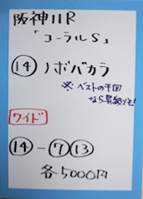 阪神11R
「コーラルS」
⑭ノボバカラ
※ベストの千四
なら昇級でも!
ワイド
⑭-⑦⑬
各5000円